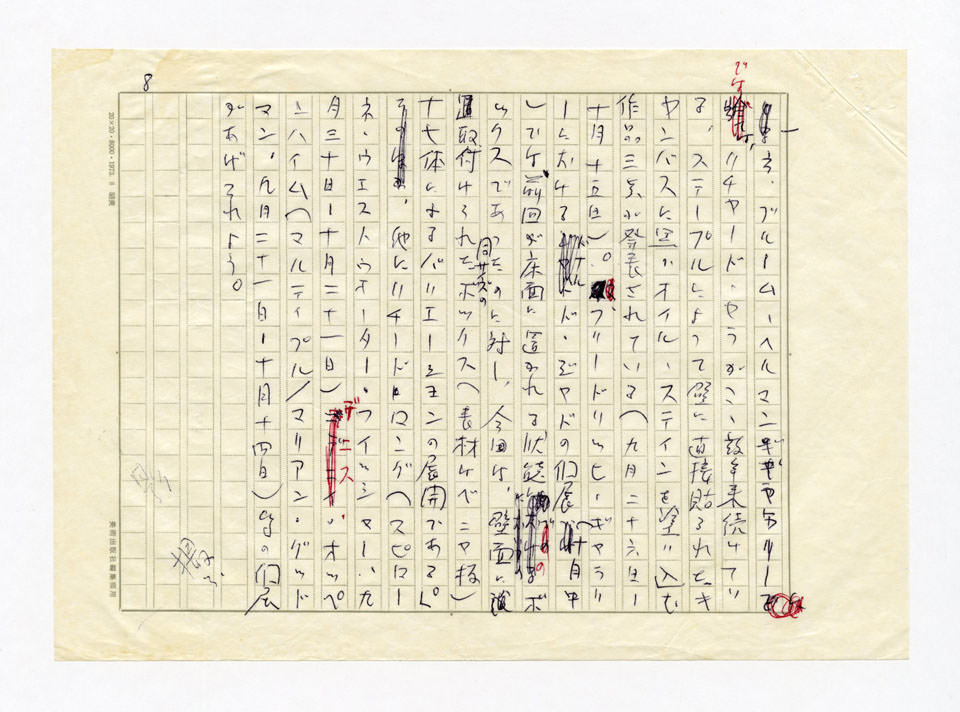 8
ネ・ブルーム・ヘルマンギャラリー
では、リチャード・セラがここ数年来続けてい
る、ステープルによって壁に直接貼られたキ
ャンバスに黒のオイル・ステインを塗り込む
作品三点が発表されている(九月二十六日ー
十月十五日)。フリードリッヒ・ギャラリ
ーにおけるドナルド・ジャドの個展(十月中
)では、前回が床面に置かれる状態のボ
ックスであったのに対し、今回は、壁面に
取付けられた同サイズのボックス(素材はベニヤ板)
十七体によるバリエーションの展開である。
他にリチード・ロング(スピロー
ネ・ウエストウオーター・フイッシャー、九
月三十日ー十月二十一日)デニス・オッペ
ンハイム(マルティプル/マリアン・グッド
マン、九月二十一日ー十月十四日)等の個展
があげられよう。
20×20・8000・1973. 8
美術出版社編集部用